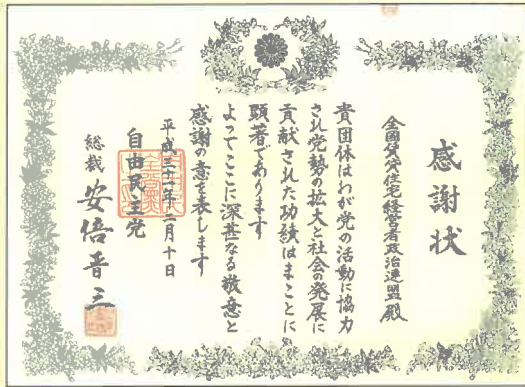 感謝状
全國賃貸住宅経営者政治連盟殿
貴団体はわが党の活動に協力
され党勢の拡大と社会の発展に
貢献された功績はまことに
顕著であります
よってここに深甚なる敬意と
感謝の意を表します
平成三十一年二月十日
自由民主党
総裁 安倍晋三